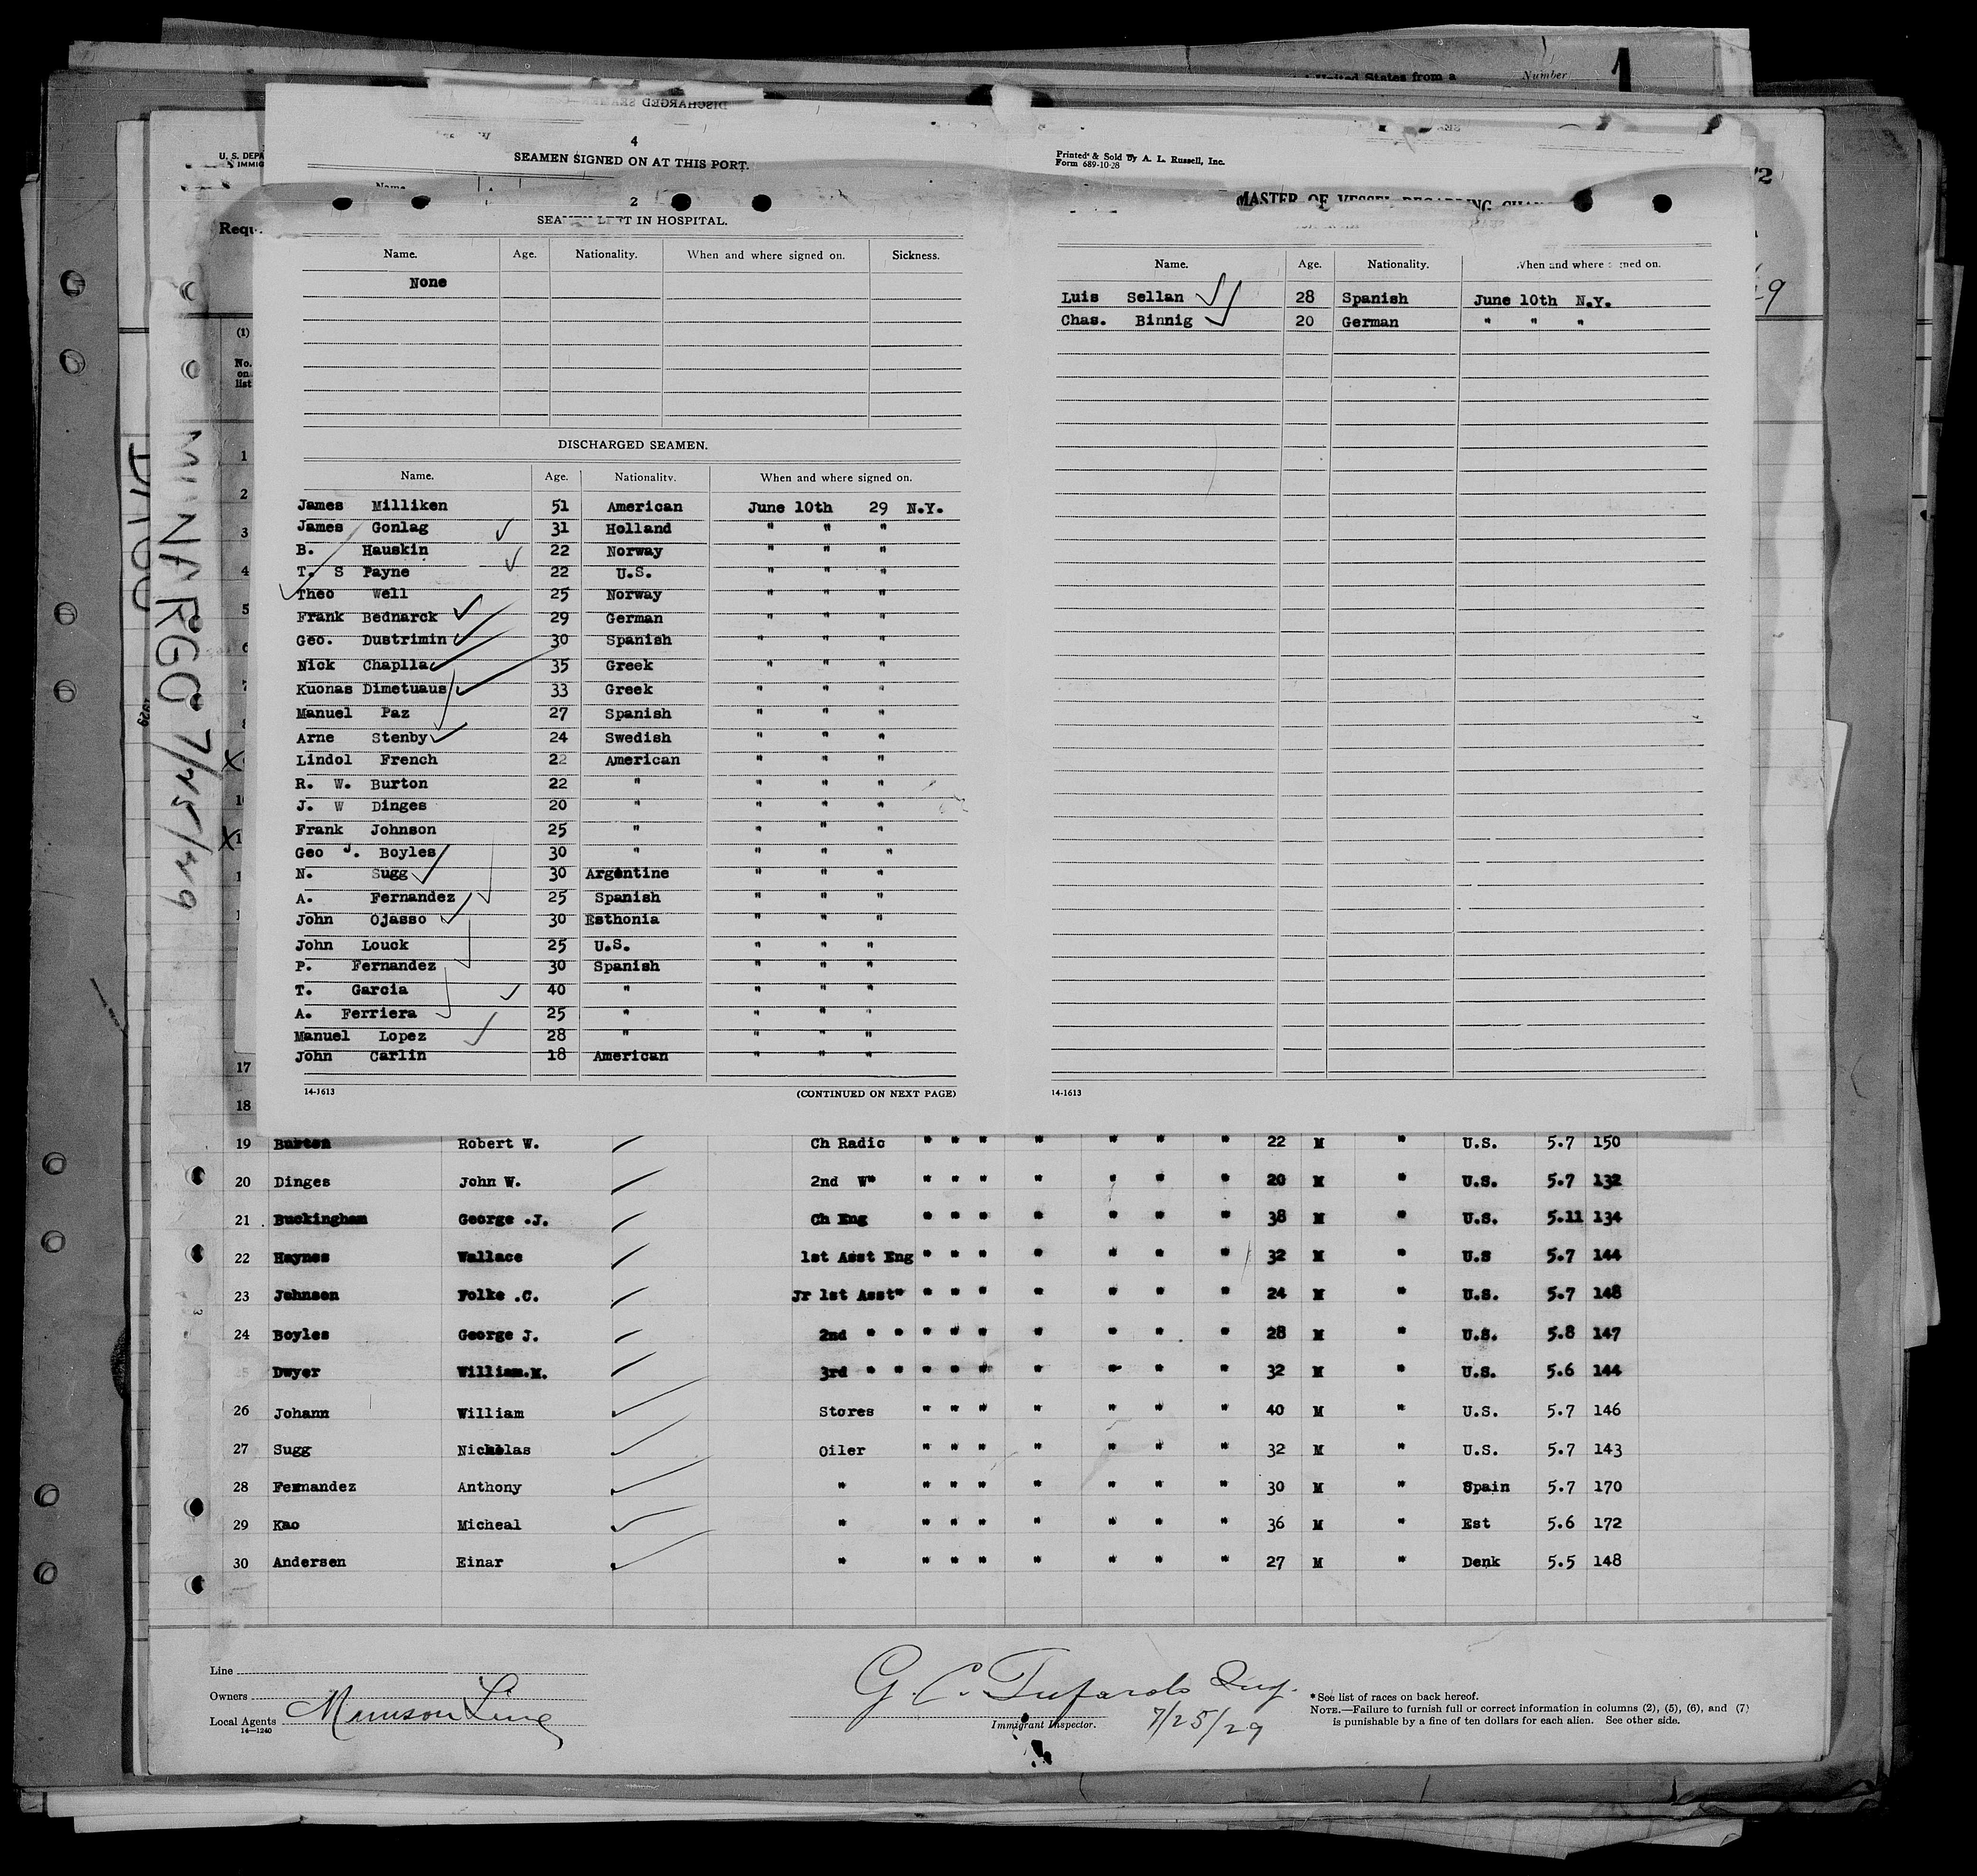 United States from a Number 1
4
SEAMEN SIGNED ON AT THIS PORT.
Printed & Sold by A. L. Russell, Inc.
Form 689-10-28
U. S. DEPA
IMMIG
Name
2
MASTER OF VESSEL REGARDING CHAN
SEAMEN LEFT IN HOSPITAL.
Requ
Name. Age. Nationality. When and where signed on. Sickness.
None
DISCHARGED SEAMEN.
Name. Age. Nationality. When and where signed on.
James Milliken 51 American June 10th 29 N.Y.
James Gonlag 31 Holland " " "
B. Hauskin 22 Norway " " "
T. S Payne 22 U.S. " " "
Theo Well 25 Norway " " "
Frank Bednarck 29 German " " "
Geo. Dustrimin 30 Spanish " " "
Nick Chaplla 35 Greek " " "
Kuonas Dimetuaus 33 Greek " " "
Manuel Paz 27 Spanish " " "
Arne Stenby 24 Swedish " " "
Lindol French 22 American " " "
R. W. Burton 22 " " " "
J. W Dinges 20 " " " "
Frank Johnson 25 " " " "
Geo J. Boyles 30 " " " "
N. Sugg 30 Argentine " " "
A. Fernandez 25 Spanish " " "
John Ojasso 30 Esthonia " " "
John Louck 25 U.S. " " "
P. Fernandez 30 Spanish " " "
T. Garcia 40 " " " "
A. Ferriera 25 " " " "
Manuel Lopez 28 " " " "
John Carlin 18 American " " "
14-1613 (CONTINUED ON NEXT PAGE)
Name. Age. Nationality. When and where signed on.
Luis Sellan 28 Spanish June 10th N.Y.
Chas. Binnig 20 German " " "
14-1613
(1)
No.
on
list
1
2
3
4
5
6
7
8
17
18
MUNARGO 7/25/29
19 Burton Robert W. Ch Radio " " " " " " " 22 M " U.S. 5.7 150
20 Dinges John W. 2nd W" " " " " " " " 20 M " U.S. 5.7 132
21 Buckingham George .J. Ch Eng " " " " " " " 38 M " U.S. 5.11 134
22 Haynes Wallace 1st Asst Eng " " " " " " " 32 M " U.S 5.7 144
23 Johnson Folke .C. Jr 1st Asst" " " " " " " " 24 M " U.S. 5.7 148
24 Boyles George J. 2nd " " " " " " " " " 28 M " U.S. 5.8 147
25 Dwyer William.M. 3rd " " " " " " " " " 32 M " U.S. 5.6 144
26 Johann William Stores " " " " " " " 40 M " U.S. 5.7 146
27 Sugg Nicholas Oiler " " " " " " " 32 M " U.S. 5.7 143
28 Fernandez Anthony " " " " " " " " 30 M " Spain 5.7 170
29 Kao Micheal " " " " " " " " 36 M " Est 5.6 172
30 Andersen Einar " " " " " " " " 27 M " Denk 5.5 148
Line
Owners
Local Agents Munson Line
14-1240
Immigrant Inspector.
7/25/29
*See list of races on back hereof.
NOTE.—Failure to furnish full or correct information in columns (2), (5), (6), and (7)
is punishable by a fine of ten dollars for each alien. See other side.